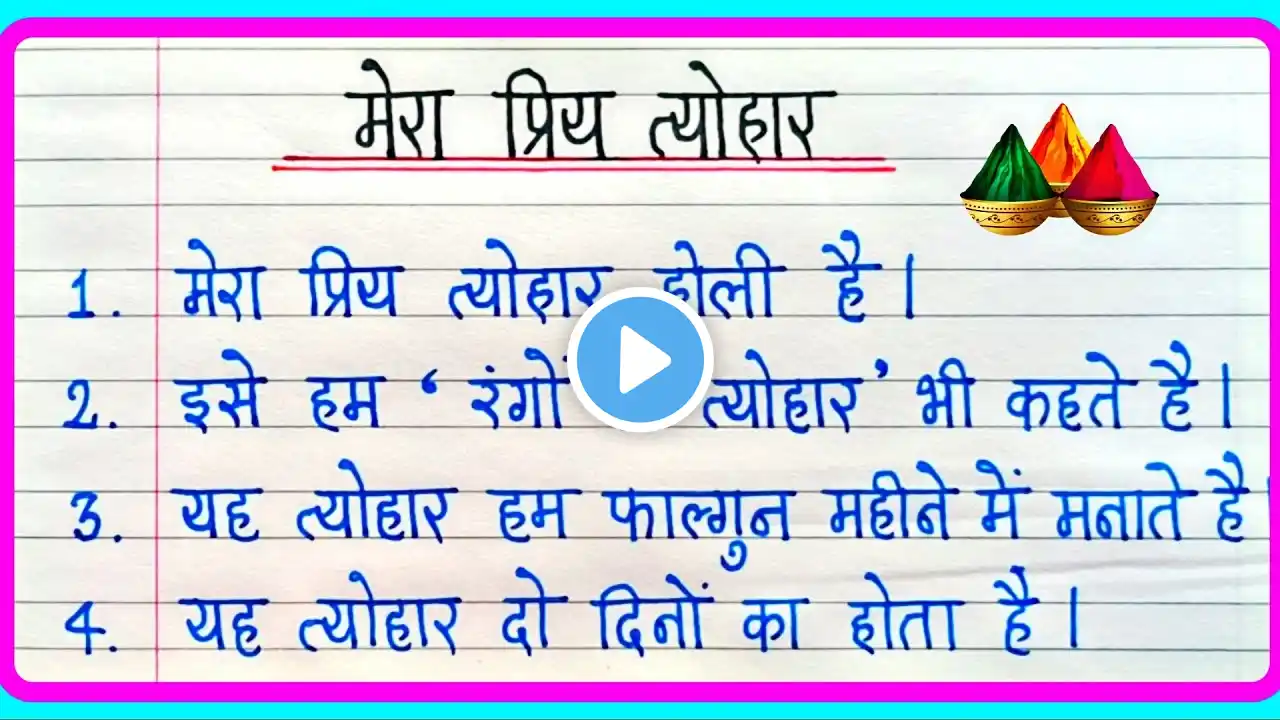 मेरा प्रिय त्योहार
1. मेरा प्रिय त्योहार होली है।
2. इसे हम ‘रंगों त्योहार’ भी कहते है।
3. यह त्योहार हम फाल्गुन महीने में मनाते है।
4. यह त्योहार दो दिनों का होता है।